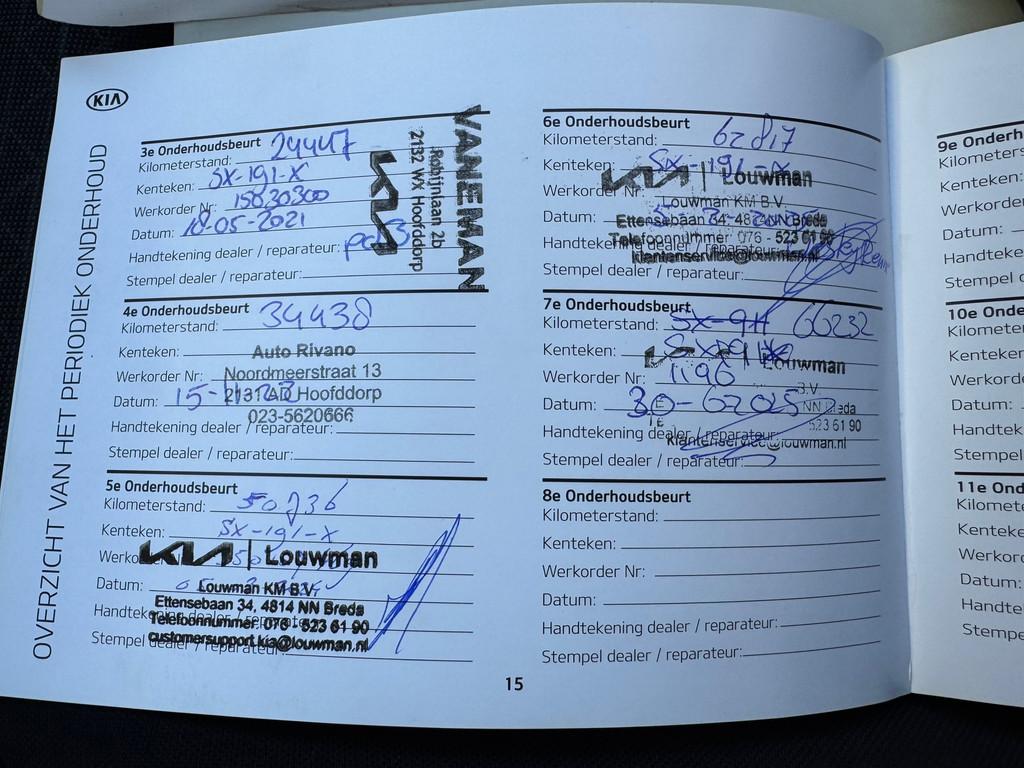 KIA
OVERZICHT VAN HET PERIODIEK ONDERHOUD
3e Onderhoudsbeurt
Kilometerstand: 24447
Kenteken: SX-191-X
Werkorder Nr: 15030300
Datum: 10-05-2021
Handtekening dealer / reparateur:
Stempel dealer / reparateur:
VANEMAN
Robijnlaan 2b
2132 WX Hoofddorp
KIA
4e Onderhoudsbeurt
Kilometerstand: 34438
Kenteken:
Werkorder Nr:
Datum: 15-
Handtekening dealer / reparateur:
Stempel dealer / reparateur:
Auto Rivano
Noordmeerstraat 13
2131 AD Hoofddorp
023-5620666
5e Onderhoudsbeurt
Kilometerstand: 50736
Kenteken: SX-191-X
Datum:
Handtekening dealer / reparateur:
Stempel dealer / reparateur:
KIA | Louwman
Louwman KM B.V.
Ettensebaan 34, 4814 NN Breda
Telefoonnummer: 076 - 523 61 90
customersupport.kia@louwman.nl
6e Onderhoudsbeurt
Kilometerstand: 62817
Kenteken: SX-191-X
Werkorder Nr:
Datum:
Handtekening dealer / reparateur:
Stempel dealer / reparateur:
KIA | Louwman
Louwman KM B.V.
Ettensebaan 34, 4814 NN Breda
Telefoonnummer 076 - 523 61 90
klantenservice@louwman.nl
7e Onderhoudsbeurt
Kilometerstand: 66232
Kenteken:
Werkorder Nr: 1196
Datum: 30-62025
Handtekening dealer / reparateur:
Stempel dealer / reparateur:
KIA | Louwman
B.V.
NN Breda
523 61 90
klantenservice@louwman.nl
8e Onderhoudsbeurt
Kilometerstand:
Kenteken:
Werkorder Nr:
Datum:
Handtekening dealer / reparateur:
Stempel dealer / reparateur:
15
9e Onderh
Kilometers
Kenteken:
Werkorder
Datum:
Handteke
Stempel d
10e Onde
Kilometer
Kenteken
Werkord
Datum:
Handtek
Stempel
11e Ond
Kilomet
Kenteke
Werkor
Datum:
Handte
Stempe